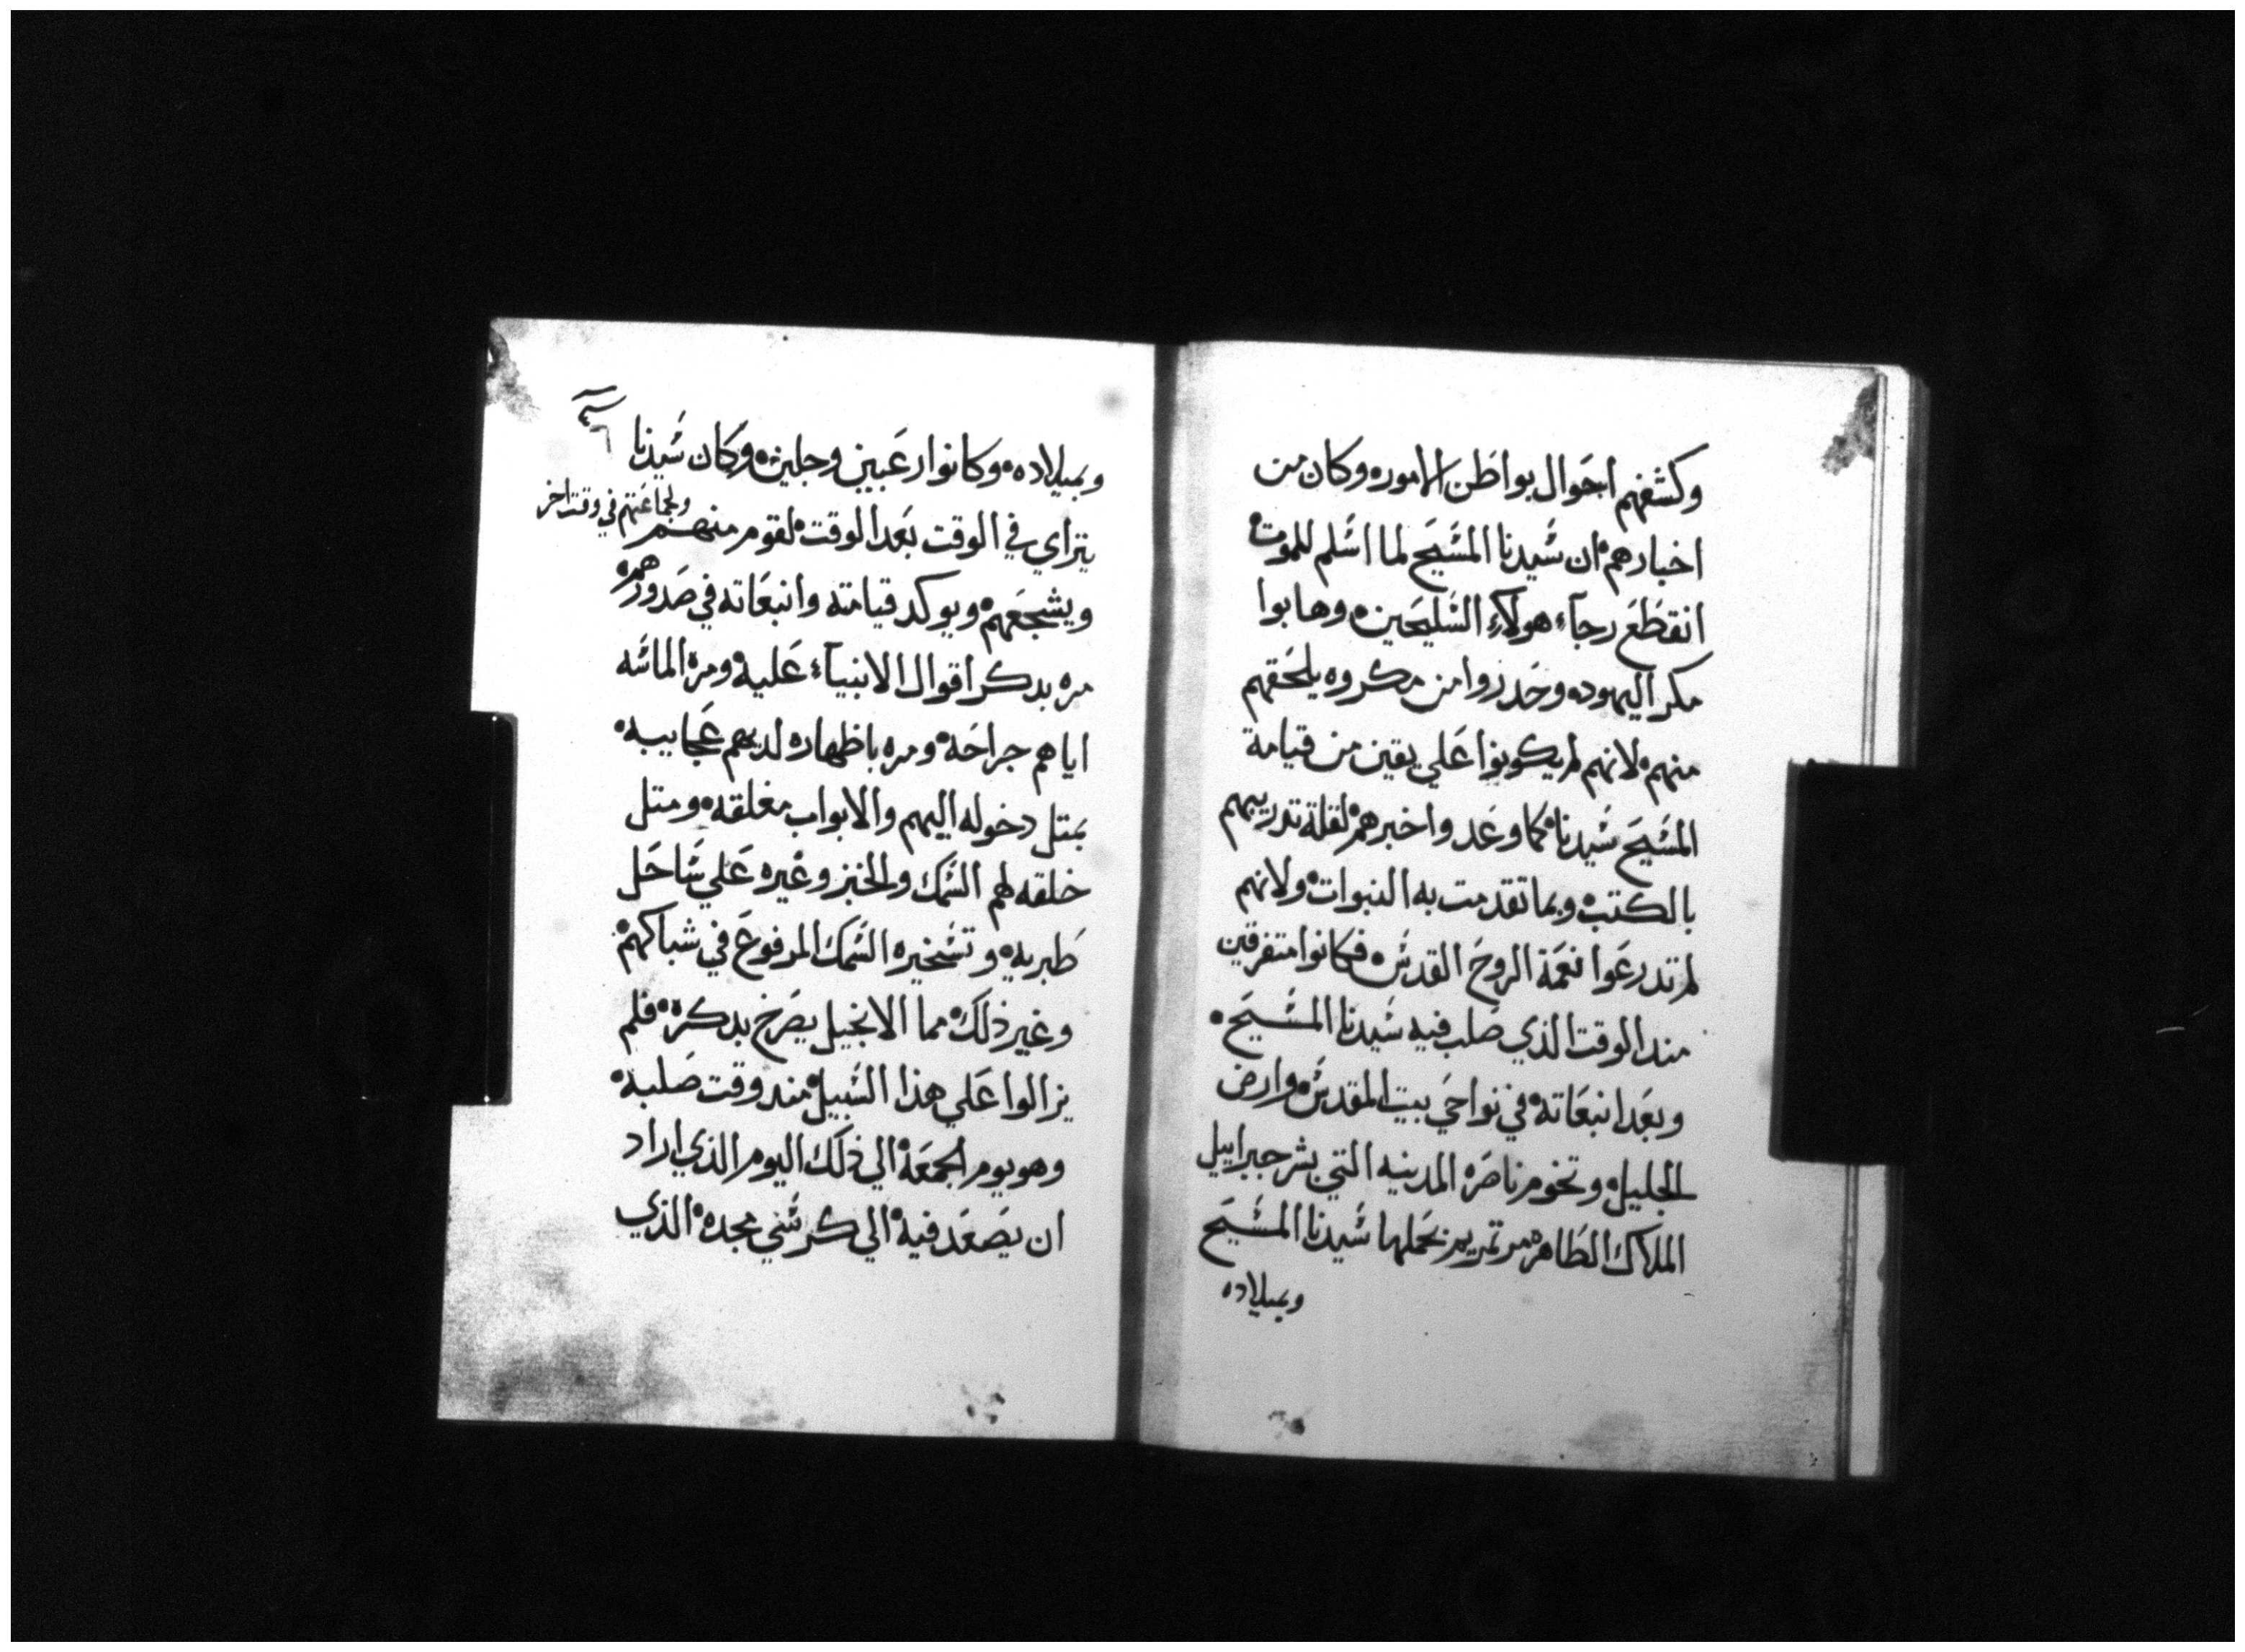 وكشفهم احوال بواطن الامور وكان من
اخبارهم ان سيدنا المسيح لما اسلم للموت
انقطع رجآء هولآء السليحين وهابوا
مكر اليهود وحدروا من مكروه يلحقهم
منهم لانهم لم يكونوا على يقين من قيامة
المسيح سيدنا كما وعد واخبرهم لقلة تدريبهم
بالكتب وبما تقدمت به النبوات ولانهم
لم تدرعوا نعمة الروح القدس فكانوا متفرقين
مند الوقت الذي صلب فيه سيدنا المسيح
وبعد انبعاته في نواحي بيت المقدس وارض
الجليل وتخوم ناصرة المدينه التي بشر جبراييل
الملاك الطاهرة مرتمريم بحملها سيدنا المسيح
وبميلاده
وبميلاده وكانوا رعبين وجلين وكان سيدنا
يتراي في الوقت بعد الوقت لقوم منهم ولجماعتهم في وقت اخر
ويشجعهم ويوكد قيامته وانبعاته في صدورهم
مره بدكر اقوال الانبيآء عليه ومرة الماسه
اياهم جراحه ومره باظهاره لديهم عجايبه
بمتل دخوله اليهم والابواب مغلقه ومتل
خلقه لهم السمك والخبز وغيره علي ساحل
طبريه وتسخيره السمك المرفوع في شباكهم
وغير ذلك مما الانجيل يصرخ بدكره فلم
يزالوا علي هذا السبيل مند وقت صلبه
وهو يوم الجمعه الي ذلك اليوم الذي اراد
ان يصعد فيه الي كرسي مجده الذي